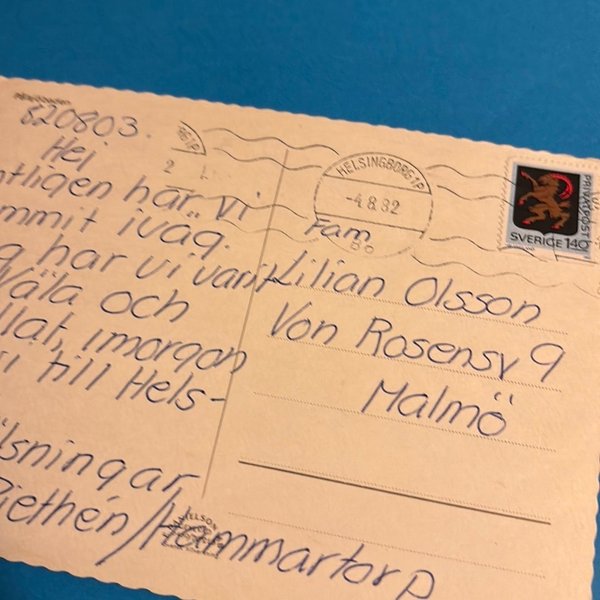 820803.
Hej
ntligen har vi
mmit iväg.
g har vi varit
Väla och
llat, imorgon
vi till Hels-
älsningar
Piethén/Hammartorp
HELSINGBORG 1P
-4.8.82
Fam
Bo
Lilian Olsson
Von Rosensv 9
Malmö
PRIVATPOST
SVERIGE 140